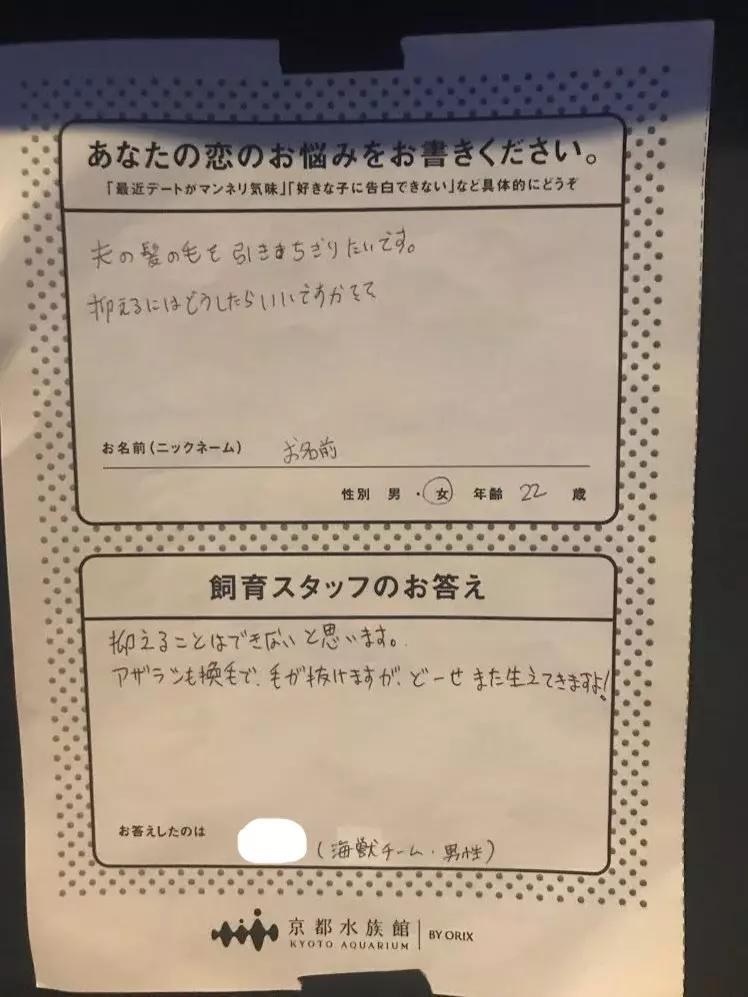 あなたの恋のお悩みをお書きください。
「最近デートがマンネリ気味」「好きな子に告白できない」など具体的にどうぞ
夫の髪の毛を引きまちぎりたいです。
抑えるにはどうしたらいいですか
お名前(ニックネーム) お名前
性別 男・女 年齢 22 歳
飼育スタッフのお答え
抑えることはできないと思います。
アザラシも換毛で、毛が抜けますが、どーせまた生えてきますよ!
お答えしたのは (海獣チーム・男性)
京都水族館 BY ORIX
KYOTO AQUARIUM